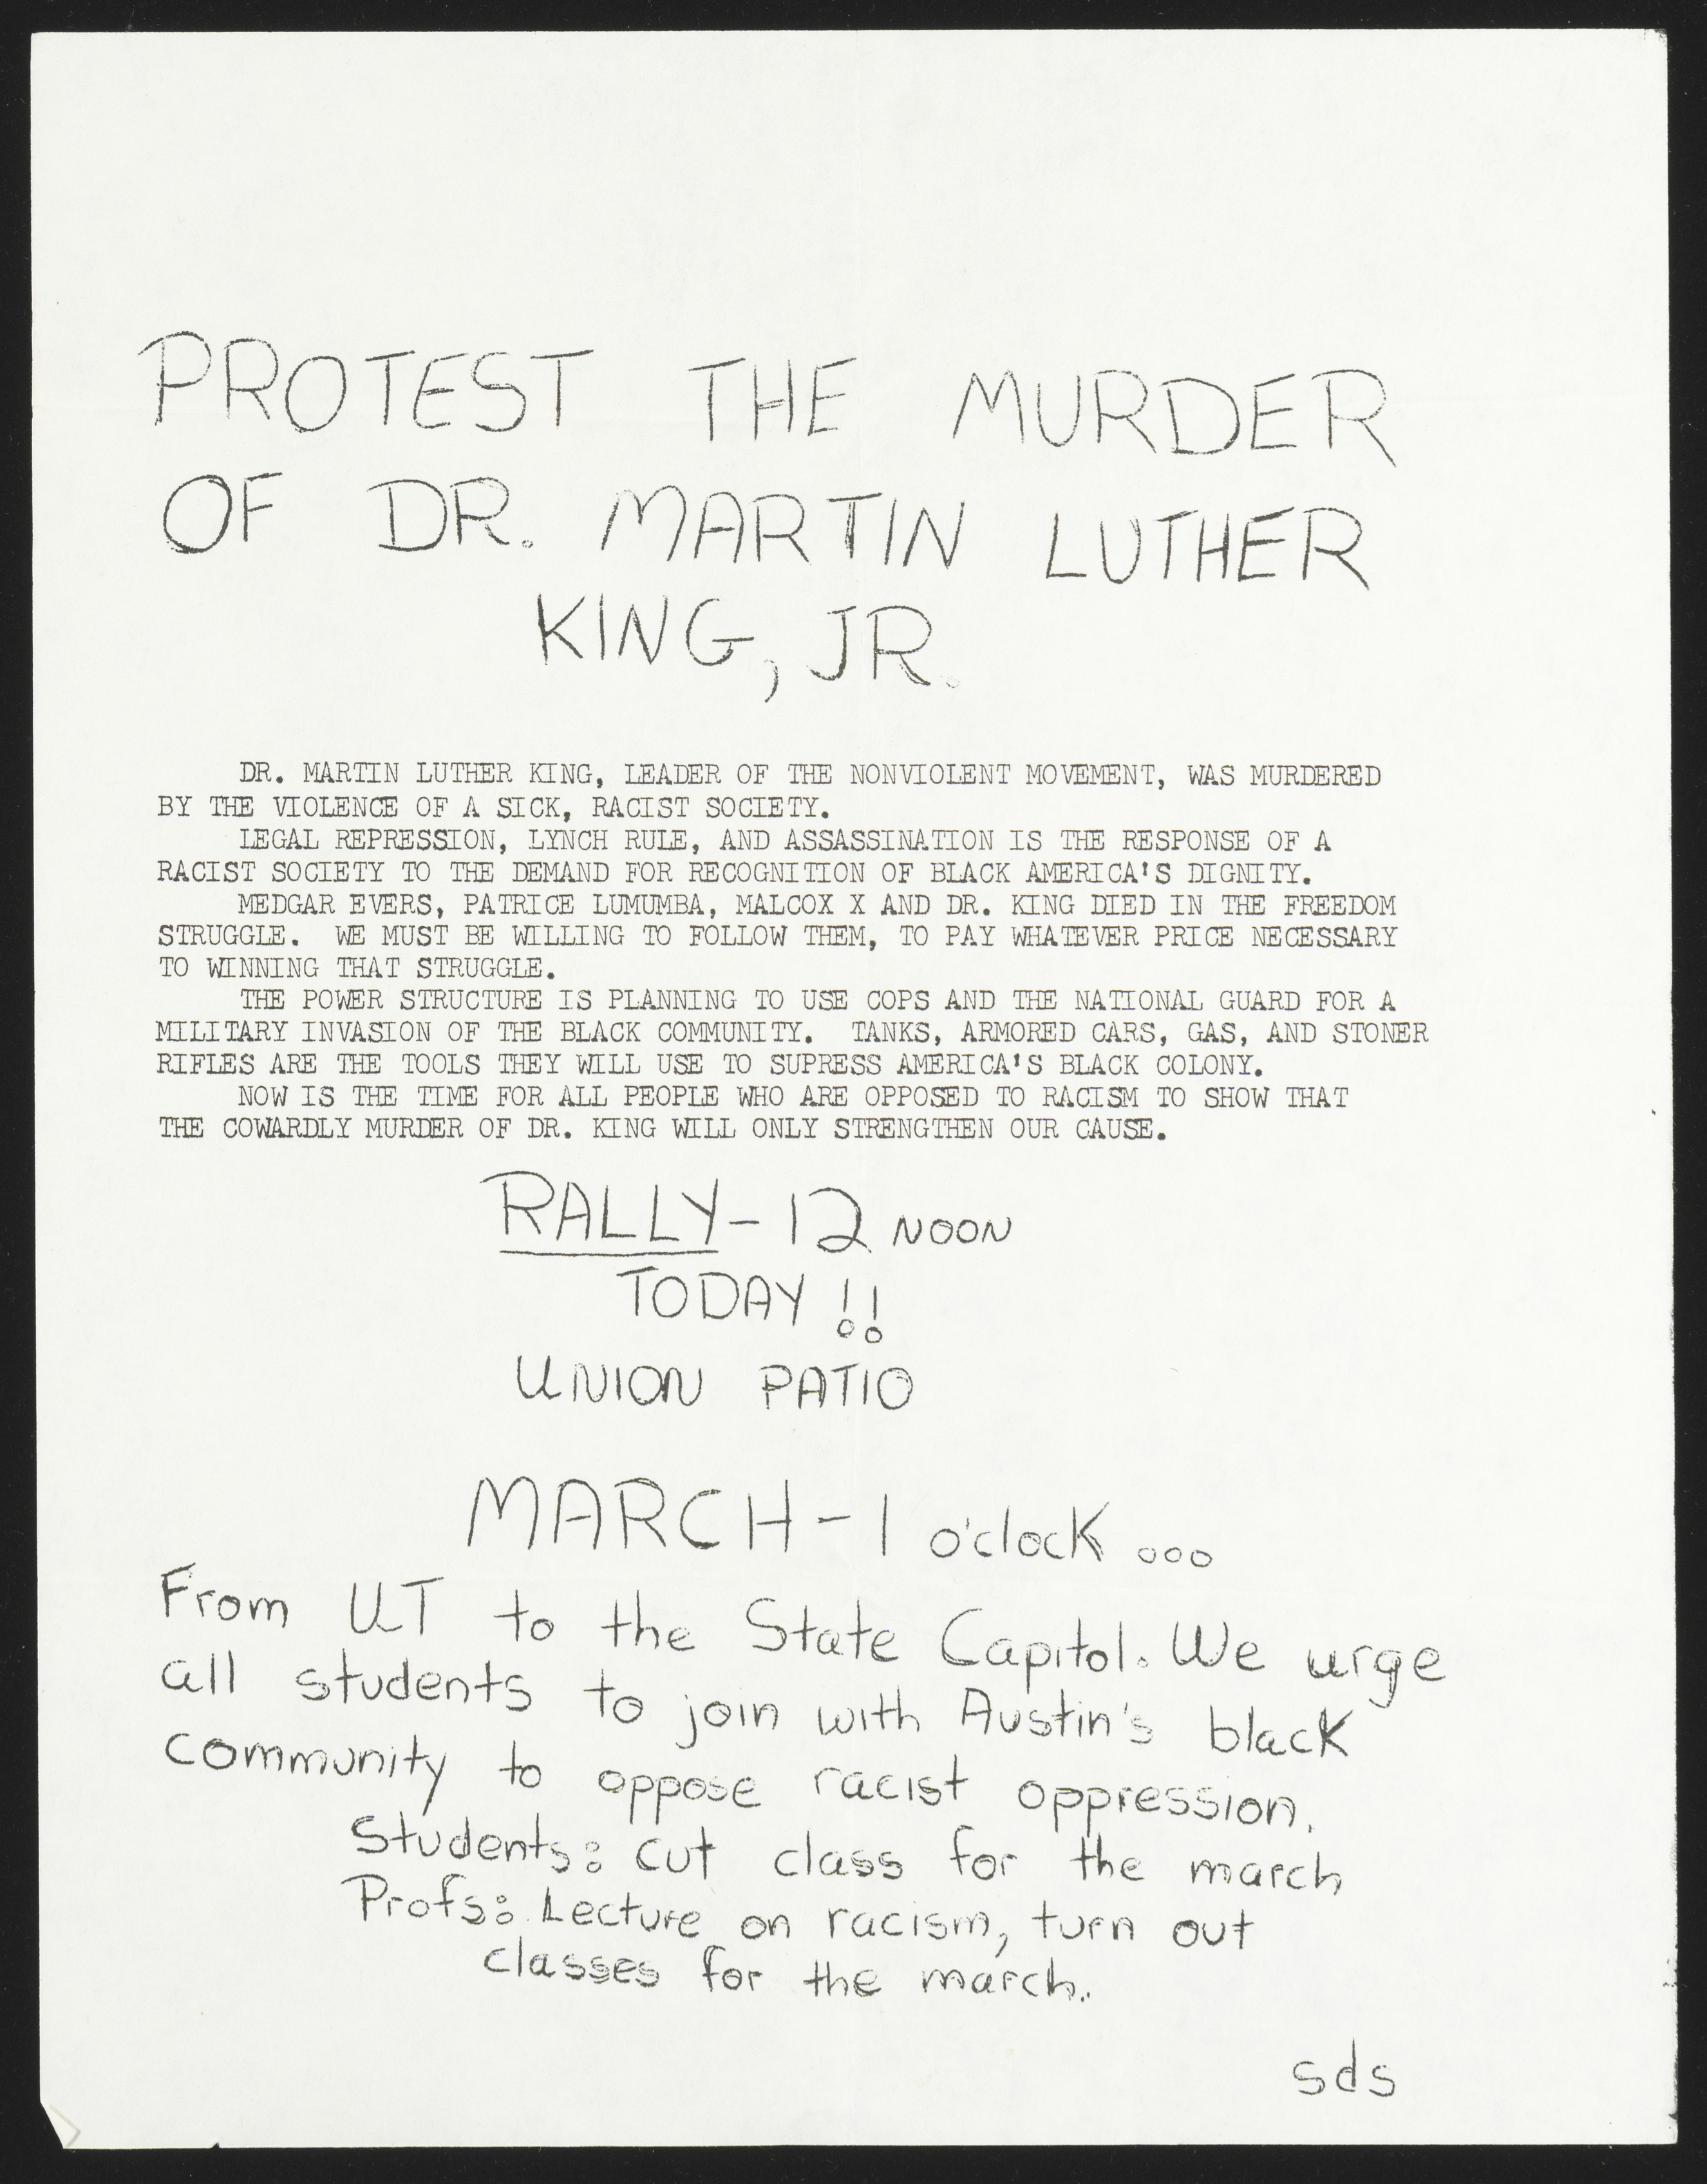 PROTEST THE MURDER
OF DR. MARTIN LUTHER
KING, JR.
DR. MARTIN LUTHER KING, LEADER OF THE NONVIOLENT MOVEMENT, WAS MURDERED
BY THE VIOLENCE OF A SICK, RACIST SOCIETY.
LEGAL REPRESSION, LYNCH RULE, AND ASSASSINATION IS THE RESPONSE OF A
RACIST SOCIETY TO THE DEMAND FOR RECOGNITION OF BLACK AMERICA'S DIGNITY.
MEDGAR EVERS, PATRICE LUMUMBA, MALCOX X AND DR. KING DIED IN THE FREEDOM
STRUGGLE. WE MUST BE WILLING TO FOLLOW THEM, TO PAY WHATEVER PRICE NECESSARY
TO WINNING THAT STRUGGLE.
THE POWER STRUCTURE IS PLANNING TO USE COPS AND THE NATIONAL GUARD FOR A
MILITARY INVASION OF THE BLACK COMMUNITY. TANKS, ARMORED CARS, GAS, AND STONER
RIFLES ARE THE TOOLS THEY WILL USE TO SUPRESS AMERICA'S BLACK COLONY.
NOW IS THE TIME FOR ALL PEOPLE WHO ARE OPPOSED TO RACISM TO SHOW THAT
THE COWARDLY MURDER OF DR. KING WILL ONLY STRENGTHEN OUR CAUSE.
RALLY - 12 NOON
TODAY !!
UNION PATIO
MARCH - 1 o'clock ...
From UT to the State Capitol. We urge
all students to join with Austin's black
community to oppose racist oppression.
Students: cut class for the march
Profs: Lecture on racism, turn out
classes for the march.
sds